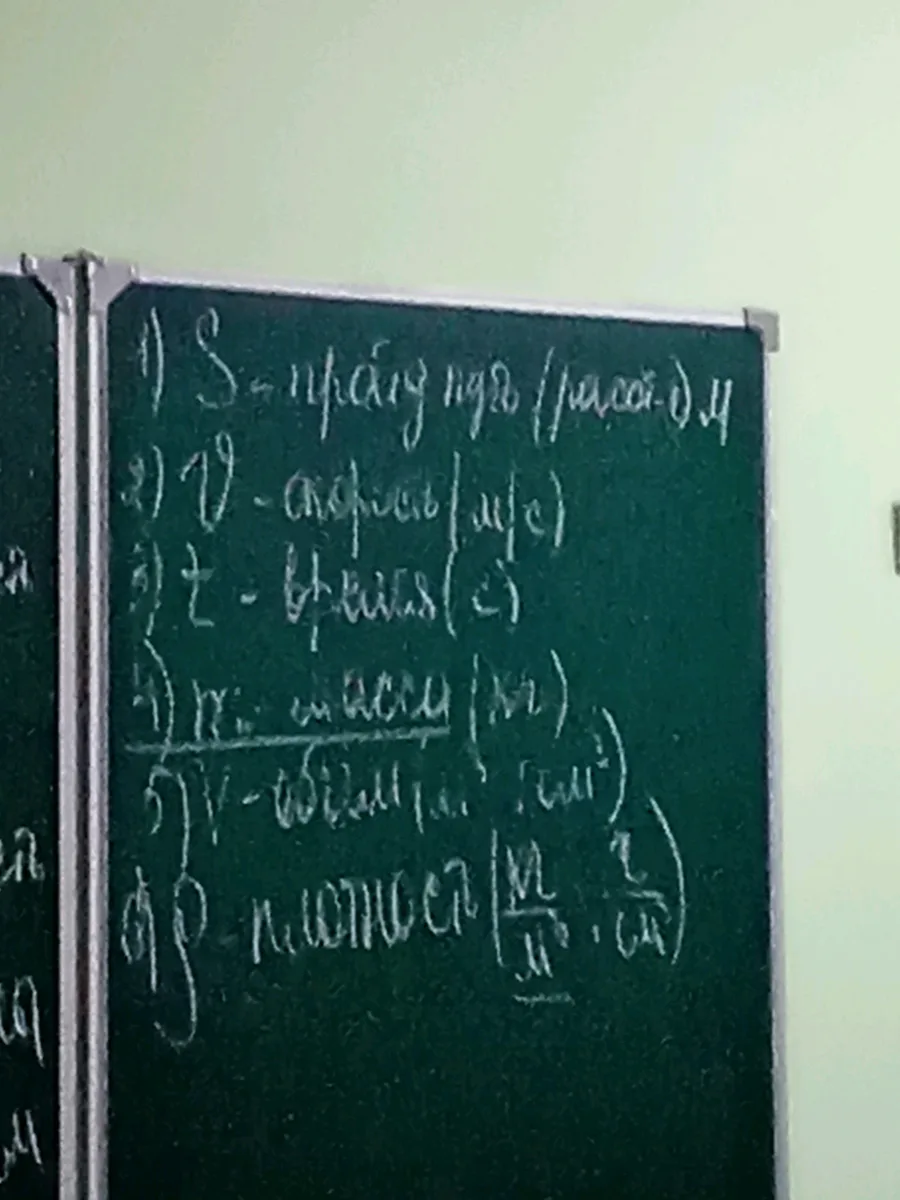 1) S - пройд путь (расст-е) м
2) V - скорость (м/с)
3) t - время (с)
4) m - масса (кг)
5) V - объём (м³, см³)
6) ρ - плотность (кг/м³, г/см³)
ей
м